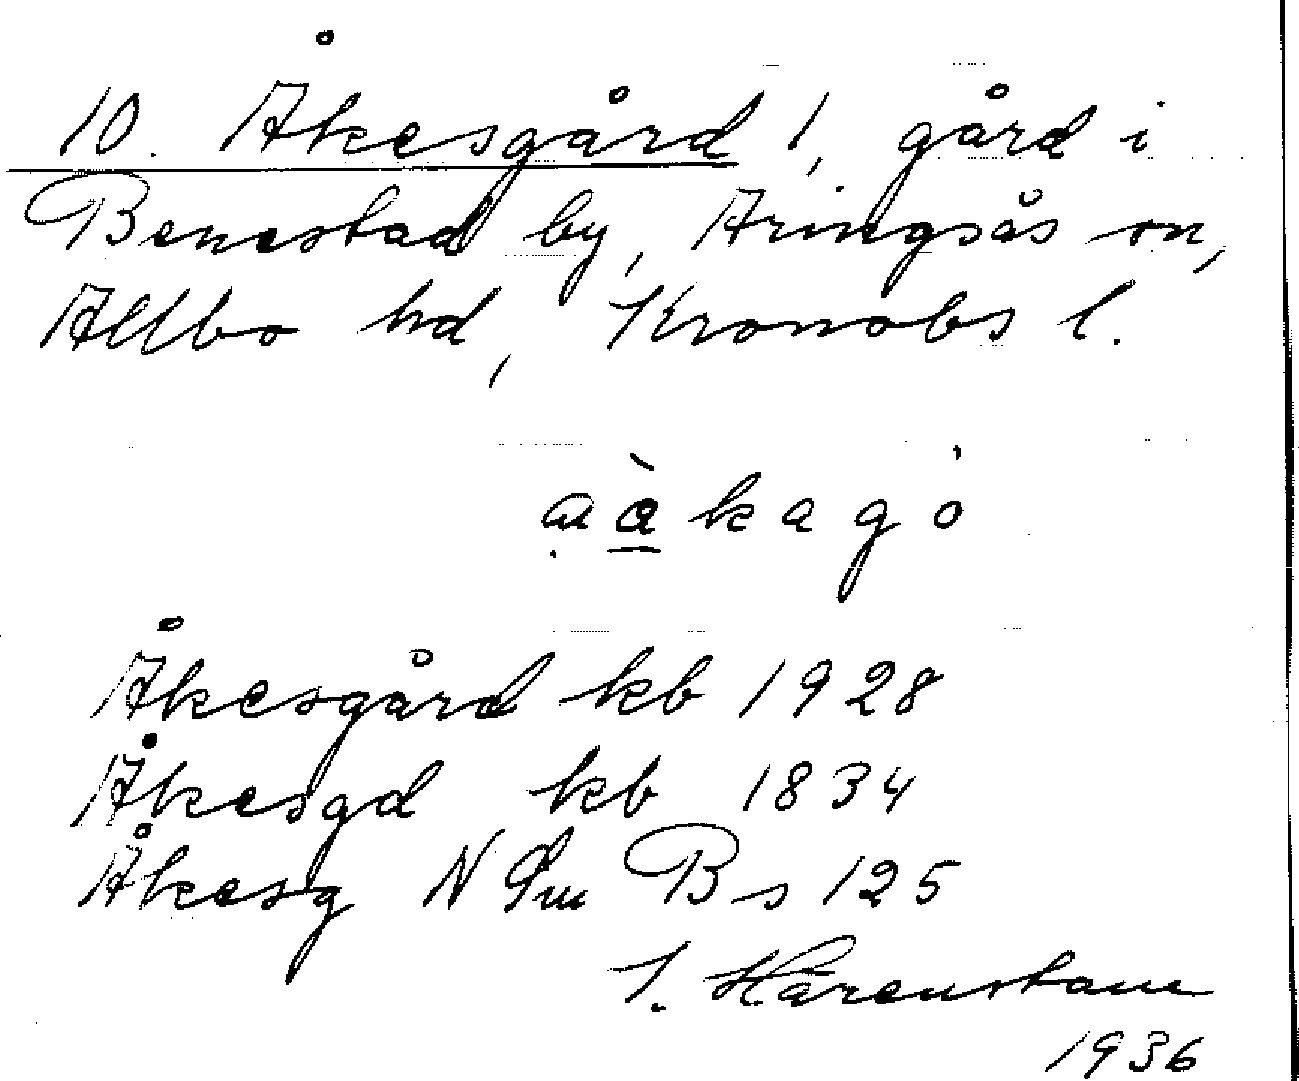 10. Åkesgård 1, gård i
Benestad by, Aringsås sn,
Allbo hd, Kronobs l.
kagó
Åkesgård kb 1928
Åkesgd kb 1834
Åkesg N Sm B s 125
Härenstam
1936